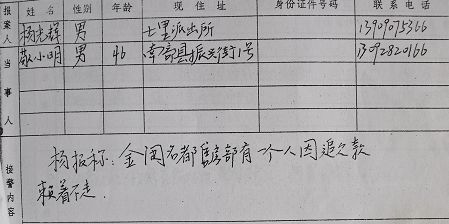 报案人 姓名 性别 年龄 现住址 身份证件号码 联系电话
杨志辉 男 七里派出所 13909075366
当事人 敬小明 男 46 南部县振兴街1号 13092820166
接警内容
杨报称:金国名都售部有一个人因追欠款
赖着不走.